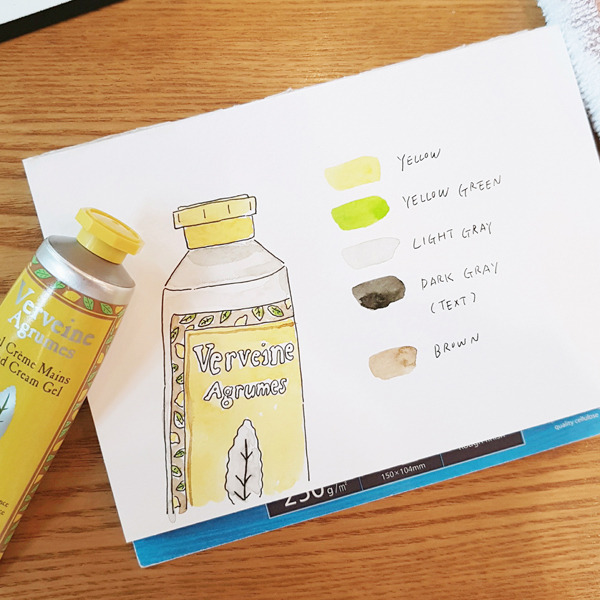 Verveine
Agrumes
Crème Mains
Cream Gel
Verveine
Agrumes
YELLOW
YELLOW GREEN
LIGHT GRAY
DARK GRAY
(TEXT)
BROWN
250 g/m²
150×104mm
quality cellulose